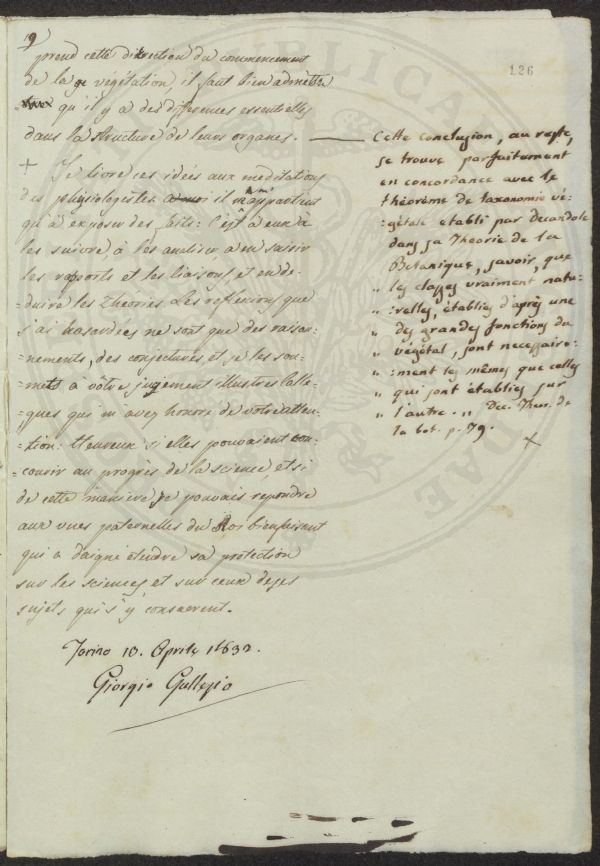 9
126
prend cette direction du commencement
de la végétation, il faut bien admettre
qu'il y a des differences essentielles
dans la structure de leurs organes. —
+ Je livre ces idées aux meditations
des physiologistes a moi il n'appartient
qu'à exposer des faits: c'est à eux à
les suivre, à les analiser, à en saisir
les rapports et les liaisons, et en dé-
=duire les Theories. Les reflexions que
j'ai hasardées ne sont que des raison-
=nements, des conjectures et je les sou-
=mets à vôtre jugement illustres Colle-
=gues qui m'avez honoré de votre atten-
=tion. Heureux si elles pouvaient con-
=courir au progrès de la science, et si
de cette maniere je pouvais repondre
aux vues paternelles du Roi bienfaisant
qui a daigné étendre sa protection
sur les sciences et sur ceux de ses
sujets qui s'y consacrent.
Torino 10. Aprile 1832.
Giorgio Gallesio
Cette conclusion, au reste,
se trouve parfaitement
en concordance avec le
théorème de taxonomie vé-
=gétale etabli par Decandole
dans sa Theorie de la
Botanique, savoir, que
„ les classes vraiment natu-
„ =relles, établies d'après une
„ des grandes fonctions du
„ végétal, sont necessaire-
„ =ment les mêmes que celles
„ qui sont établies sur
„ l'autre. „ Dec. Theor. de
la bot. p. 79.
+